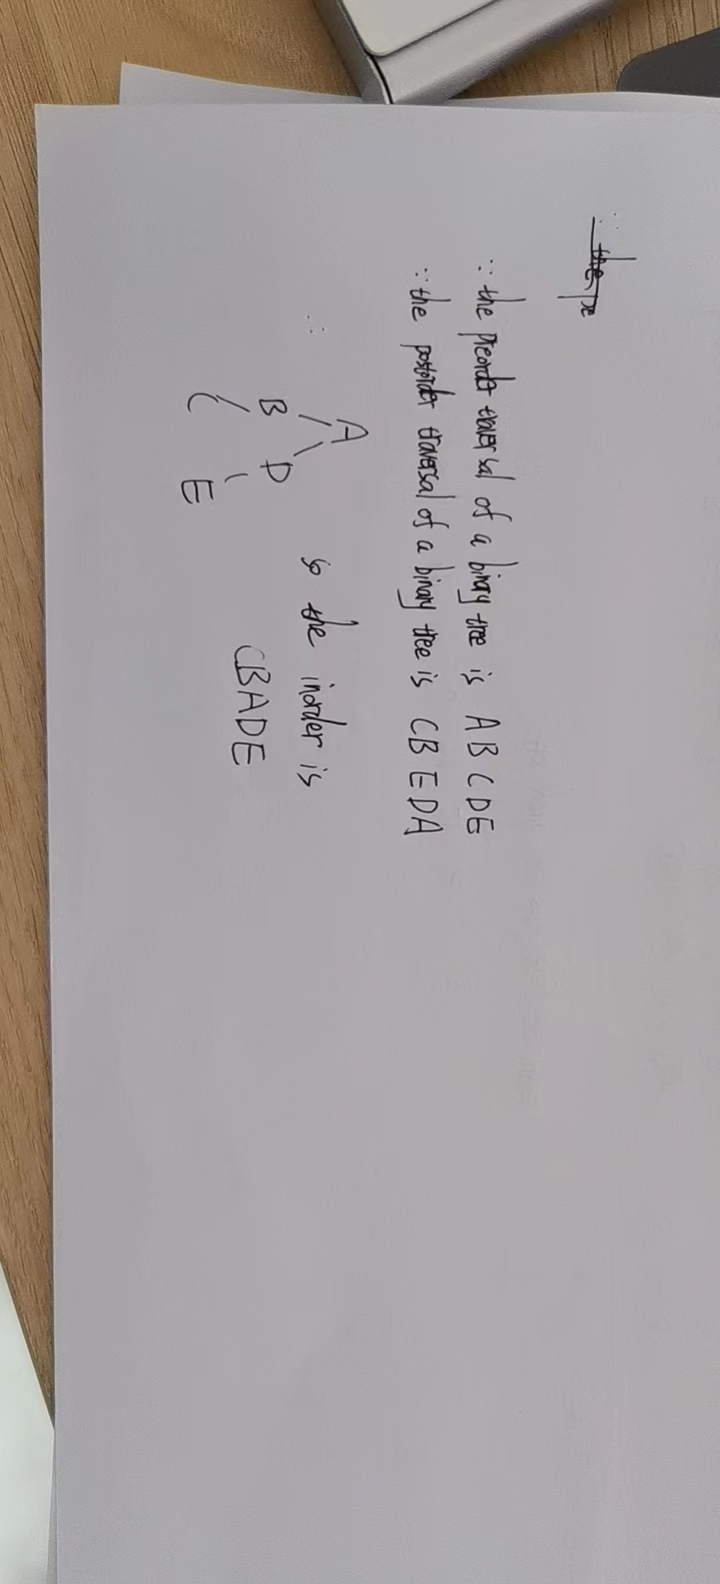 ∵ the preorder traversal of a binary tree is ABCDE
∵ the postorder traversal of a binary tree is CBEDA
∴
A
B D
C E
so the inorder is
CBADE